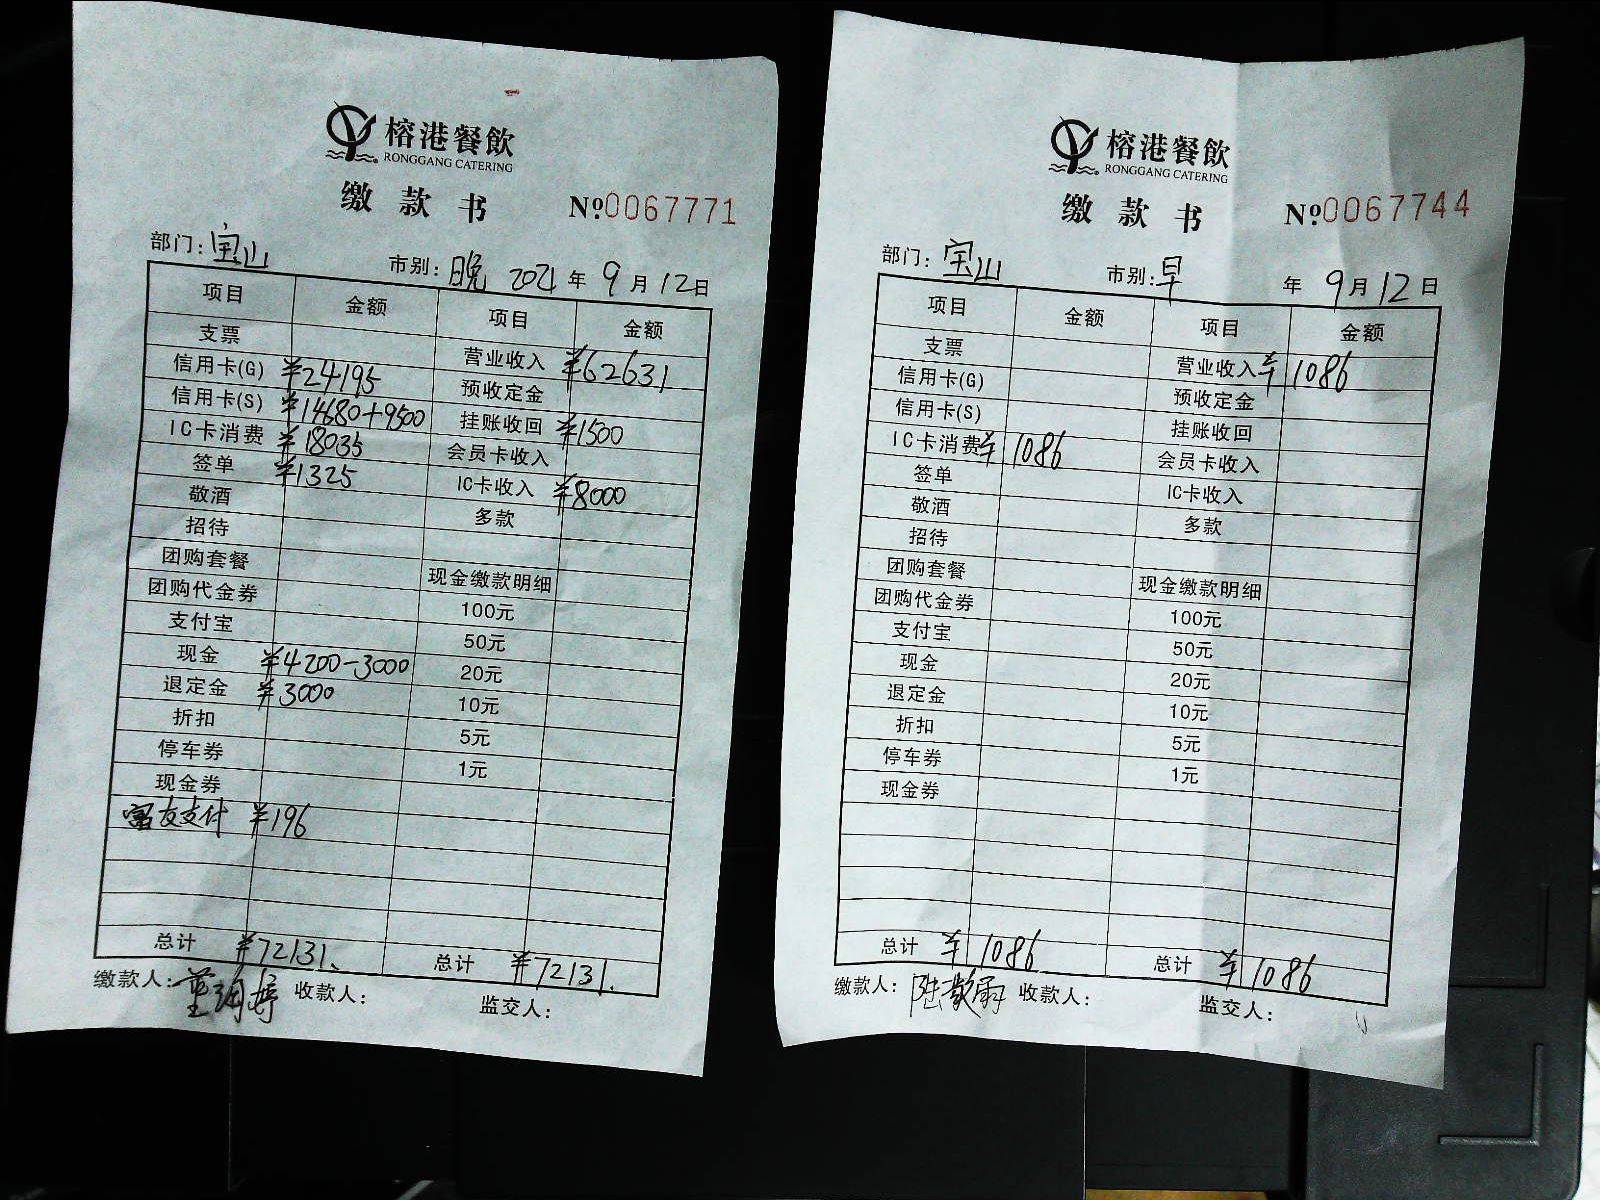 榕港餐飲
RONGGANG CATERING
缴款书 №0067771
部门：宝山 市别：晚 2021年9月12日
项目 金额 项目 金额
支票 营业收入 ¥62631
信用卡(G) ¥24195 预收定金
信用卡(S) ¥14680+9500 挂账收回 ¥1500
IC卡消费 ¥18035 会员卡收入
签单 ¥1325 IC卡收入 ¥8000
敬酒 多款
招待
团购套餐 现金缴款明细
团购代金券 100元
支付宝 50元
现金 ¥4200-3000 20元
退定金 ¥3000 10元
折扣 5元
停车券 1元
现金券
富友支付 ¥196
总计 ¥72131. 总计 ¥72131.
缴款人： 收款人： 监交人：
榕港餐飲
RONGGANG CATERING
缴款书 №0067744
部门：宝山 市别：早 年9月12日
项目 金额 项目 金额
支票 营业收入 ¥1086
信用卡(G) 预收定金
信用卡(S) 挂账收回
IC卡消费 ¥1086 会员卡收入
签单 IC卡收入
敬酒 多款
招待
团购套餐 现金缴款明细
团购代金券 100元
支付宝 50元
现金 20元
退定金 10元
折扣 5元
停车券 1元
现金券
总计 ¥1086 总计 ¥1086
缴款人： 收款人： 监交人：